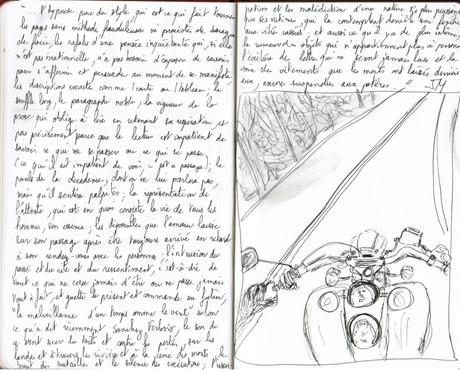 "... l'hypnose pure du style qui est ce qui fait tourner
les pages sans méthode frauduleuse ni procédé de marque
de force, les rafales d'une pensée inquiétante qui, si elle
n'est pas irrationnelle, n'a pas besoin d'exposer de
pour s'affirmer et persuade au moment de se manifester
les descriptions exactes comme l'carte ou l'tableau, le
souffle long, le paragraphe noble, la vigueur de la
prose qui oblige à lire en retenant sa respiration et
pas précisément parce que le lecteur est impatient de
savoir ce qui va se passer ou ce qui se passe
(ce qu'il est impatient de voir - c'est ce passage), le
pouls de la décadence, dont on ne lui parlera pas,
mais qu'il sentira palpiter; la représentation de
l'attente, qui est en quoi consiste la vie de tous les
hommes, son essence; les dépouilles que l'amour laisse
sur son passage après être toujours arrivé en retard
à son rendez-vous avec les personnes; l'intrusion du
passé et du rite et du ressentiment, c'est-à-dire de
tout ce qui ne cesse jamais d'être ou ne passe jamais
tout à fait et guette le présent et commande au futur,
"la malveillance d'un temps comme le vent" selon
ce qu'a dit récemment Sánchez Ferlosio, le son du
vent sur les toits et contre les portes, sur les
landes et à travers les rivières et à la cime des morts, le
bruit des batailles et le silence des cicatrices; l'
pation et la malédiction d'une nature déjà plus
que ses victimes, qui la contemplant donnent une
aux villes carrées, et aussi ce qu'il y a de plus intime,
la rumeur des objets qui n'appartiennent plus à personne
l'écriture de lettres qui ne seront jamais lues et la
voix de vêtements que les morts ont laissés derrière
eux, encore suspendus aux patères. " JM